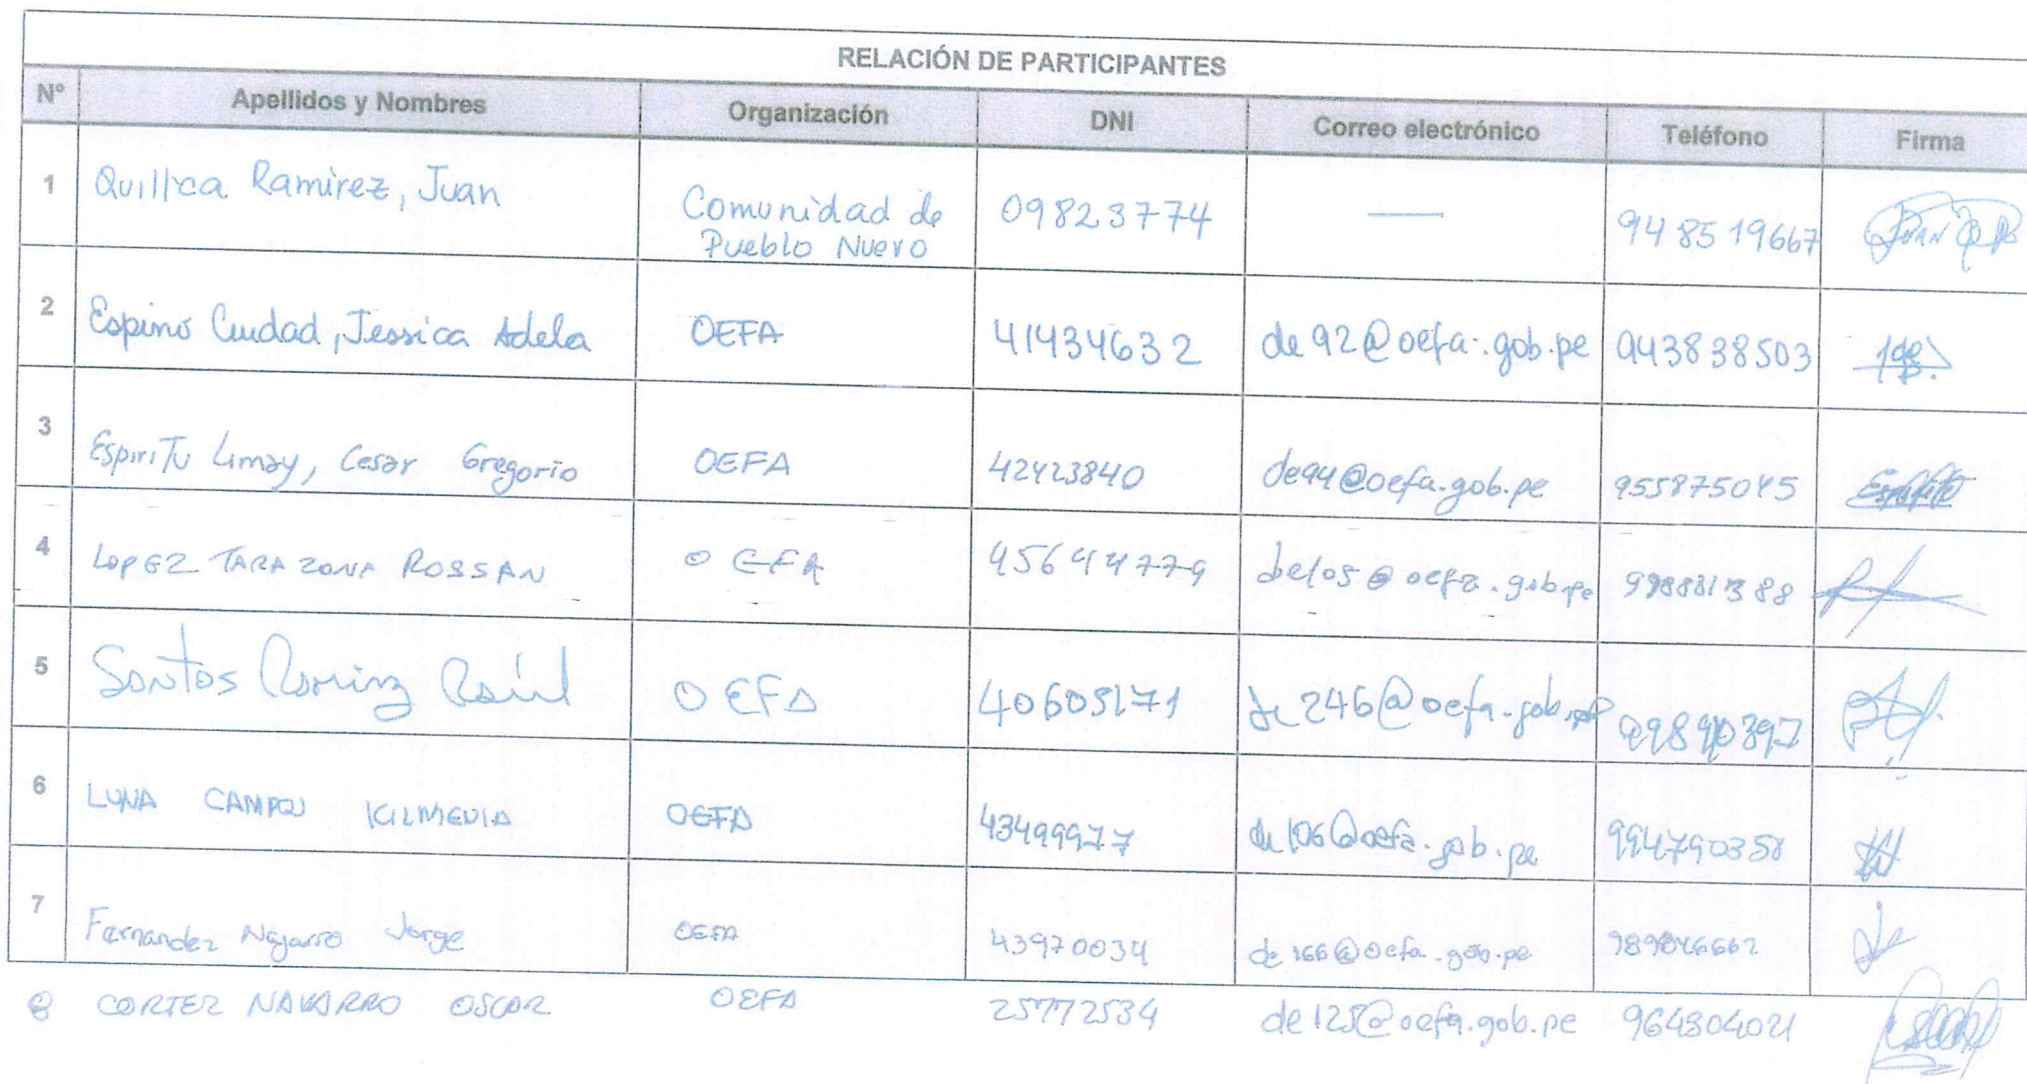 RELACIÓN DE PARTICIPANTES
N° Apellidos y Nombres Organización DNI Correo electrónico Teléfono Firma
1 Quillca Ramirez, Juan Comunidad de Pueblo Nuevo 09823774 — 948519667
2 Espino Ciudad, Jessica Adela OEFA 41434632 de92@oefa.gob.pe 943838503
3 Espiritu Limay, Cesar Gregorio OEFA 42423840 de94@oefa.gob.pe 955875045
4 LOPEZ TARAZONA ROSSAN OEFA 45644779 de105@oefa.gob.pe
5 Santos Raúl OEFA 40605171 de246@oefa.gob.pe
6 LUNA KILMENIA OEFA 43499977 de106@oefa.gob.pe 994790358
7 Fernandez Najarro Jorge OEFA 43970034 de166@oefa.gob.pe
8 CORTEZ NAVARRO OSCAR OEFA 25772534 de125@oefa.gob.pe 964304021